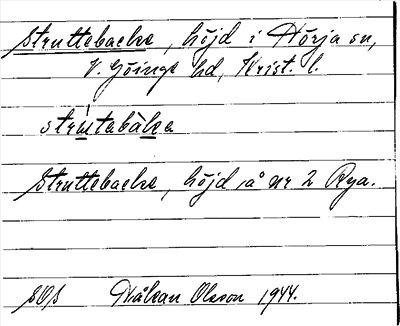 Struttebacke, höjd i Hörja sn,
V. Göinge hd, Krist. l.
strútebàka
Struttebacke, höjd å nr 2 Rya.
SOS Håkan Olsson 1944.